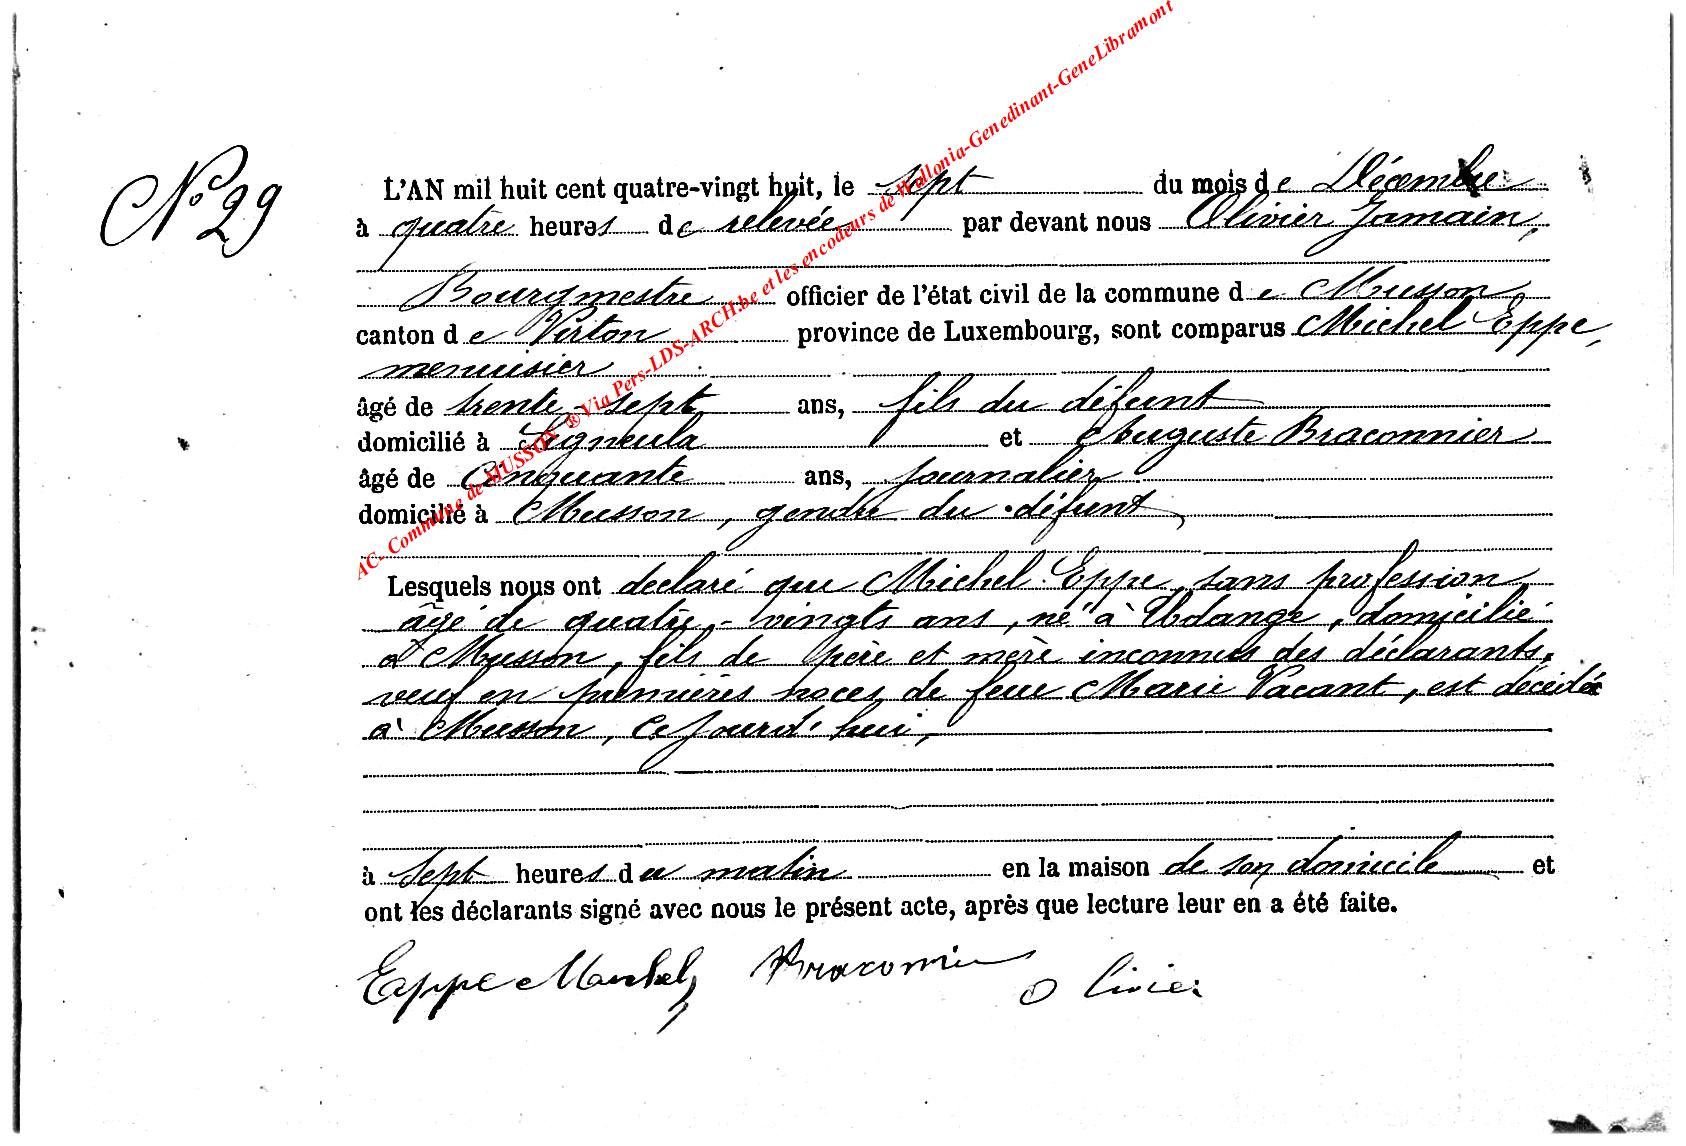 N° 29
L'AN mil huit cent quatre-vingt huit, le sept du mois de Décembre
à quatre heures de relevée par devant nous Olivier Jamain,
Bourgmestre officier de l'état civil de la commune de Musson
canton de Virton province de Luxembourg, sont comparus Michel Eppe,
menuisier
âgé de trente-sept ans, fils du défunt
domicilié à Signeulx et Auguste Braconnier
âgé de Cinquante ans, journalier
domicilié à Musson, gendre du défunt
Lesquels nous ont declaré que Michel Eppe, sans profession,
âgé de quatre-vingts ans, né à Udange, domicilié
à Musson, fils de père et mère inconnus des déclarants,
veuf en premières noces de feue Marie Vacant, est décédé
à Musson, ce jourd'hui,
à sept heures du matin en la maison de son domicile et
ont les déclarants signé avec nous le présent acte, après que lecture leur en a été faite.
Eppe Michel Braconnier Olivier
AC- Commune de MUSSON ® Via Pers-LDS-ARCH.be et les encodeurs de Wallonia-Genedinant-GeneLibramont